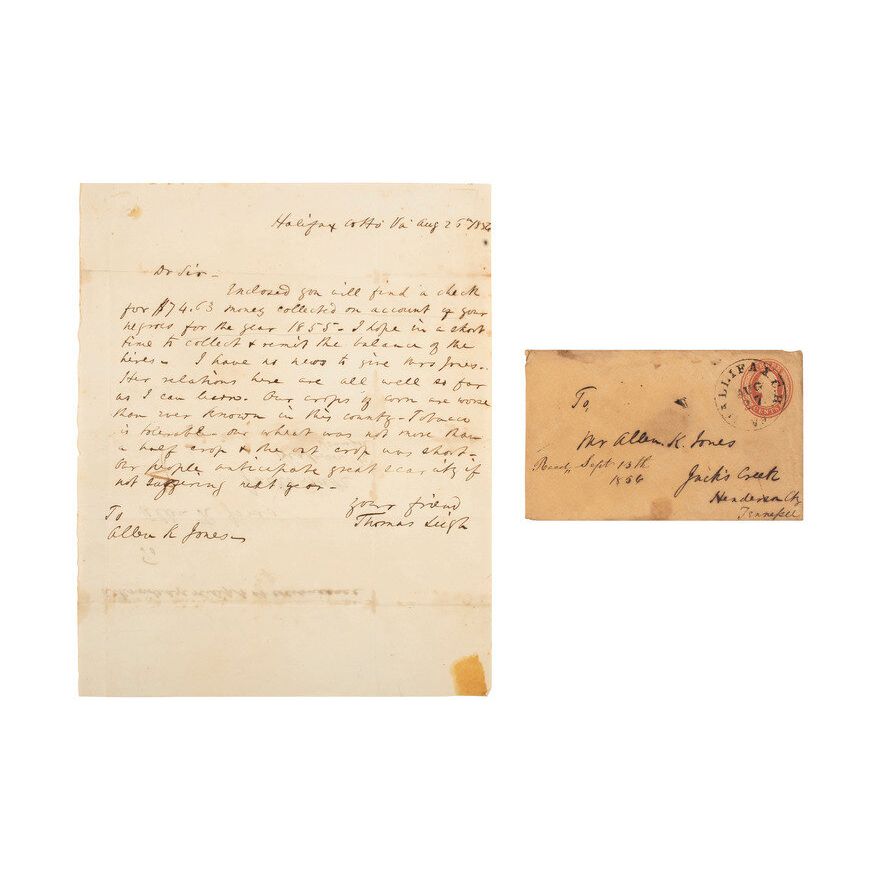 Halifax Ct Ho Va Aug 26th 1856
Dr Sir -
Enclosed you will find a check
for $74.63 money collected on account of your
negroes for the year 1855 - I hope in a short
time to collect & remit the balance of the
hires - I have no news to give Mrs Jones -
Her relations here are all well so far
as I can learn. Our crops of corn are worse
than ever known in this county - Tobacco
is tolerable - our wheat was not more than
a half crop & the oat crop was short -
Our people anticipate great scarcity if
not suffering next year -
Your friend
Thomas Leigh
To
Allen K Jones -
HALIFAX C.H.
AUG
CENTS
To,
Mr Allen K. Jones
Jack's Creek
Henderson Cty
Tennessee
Recd, Sept 13th
1856